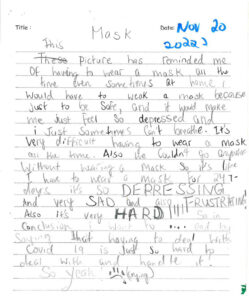 Title: Mask Date: Nov 20 2022
This
These Picture has reminded me
Of having to wear a mask all the
time even sometimes at home I
Would have to weak a mask because
just to be safe, and it would make
me Just feel so depressed and
i Just sometimes can't breathe. It's
very difficult having to wear a mask
all the time. Also we couldn't go anywhere
Without wearing a mask so it's
I have to wear a mask for 24-7
days it's so DEPRESSING
And very SAD and also FRUSTRATING
Also it's very HARD !!!! So in
Conclusion I want to ... end by
Saying that having to deal with
Covid 19 is Just so hard to
deal with and handle it!
So yeah